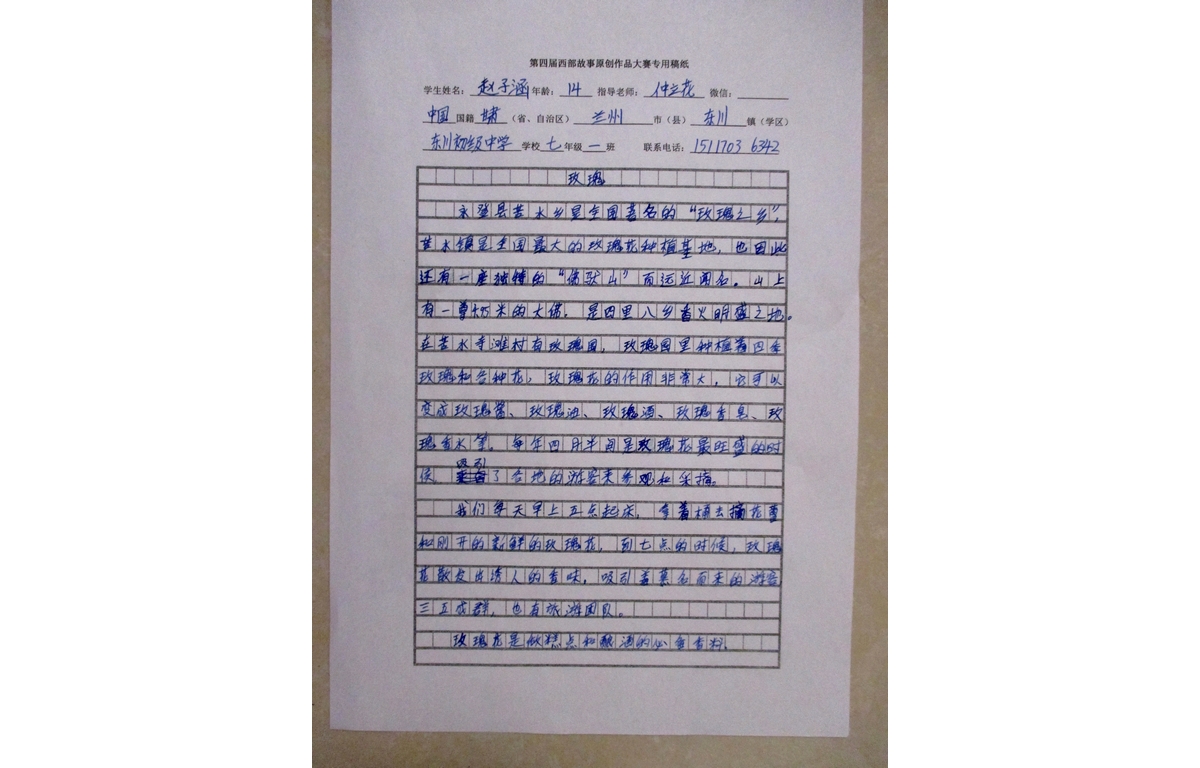 第四届西部故事原创作品大赛专用稿纸
学生姓名：赵子涵 年龄：14 指导老师：仲立花 微信：
中国 国籍 甘肃（省、自治区） 兰州 市（县） 东川 镇（学区）
东川初级中学 学校 七 年级 一 班 联系电话：1511703 6342
玫瑰
永登县苦水乡是全国著名的“玫瑰之乡”，
苦水镇是全国最大的玫瑰花种植基地，也因此
还有一座独特的“佛驮山”而远近闻名。山上
有一尊 米的大佛，是四里八乡香火明盛之地。
在苦水寺滩村有玫瑰园，玫瑰园里种植着四季
玫瑰和各种花，玫瑰花的作用非常大，它可以
变成玫瑰酱、玫瑰油、玫瑰酒、玫瑰香皂、玫
瑰香水等。每年四月半间是玫瑰花最旺盛的时
候，吸引了各地的游客来参观和采摘。
我们每天早上五点起床，拿着桶去摘花蕾
和刚开的新鲜的玫瑰花，到七点的时候，玫瑰
花散发出诱人的香味，吸引着慕名而来的游客
三五成群，也有旅游团队。
玫瑰花是做糕点和酿酒的必备香料。